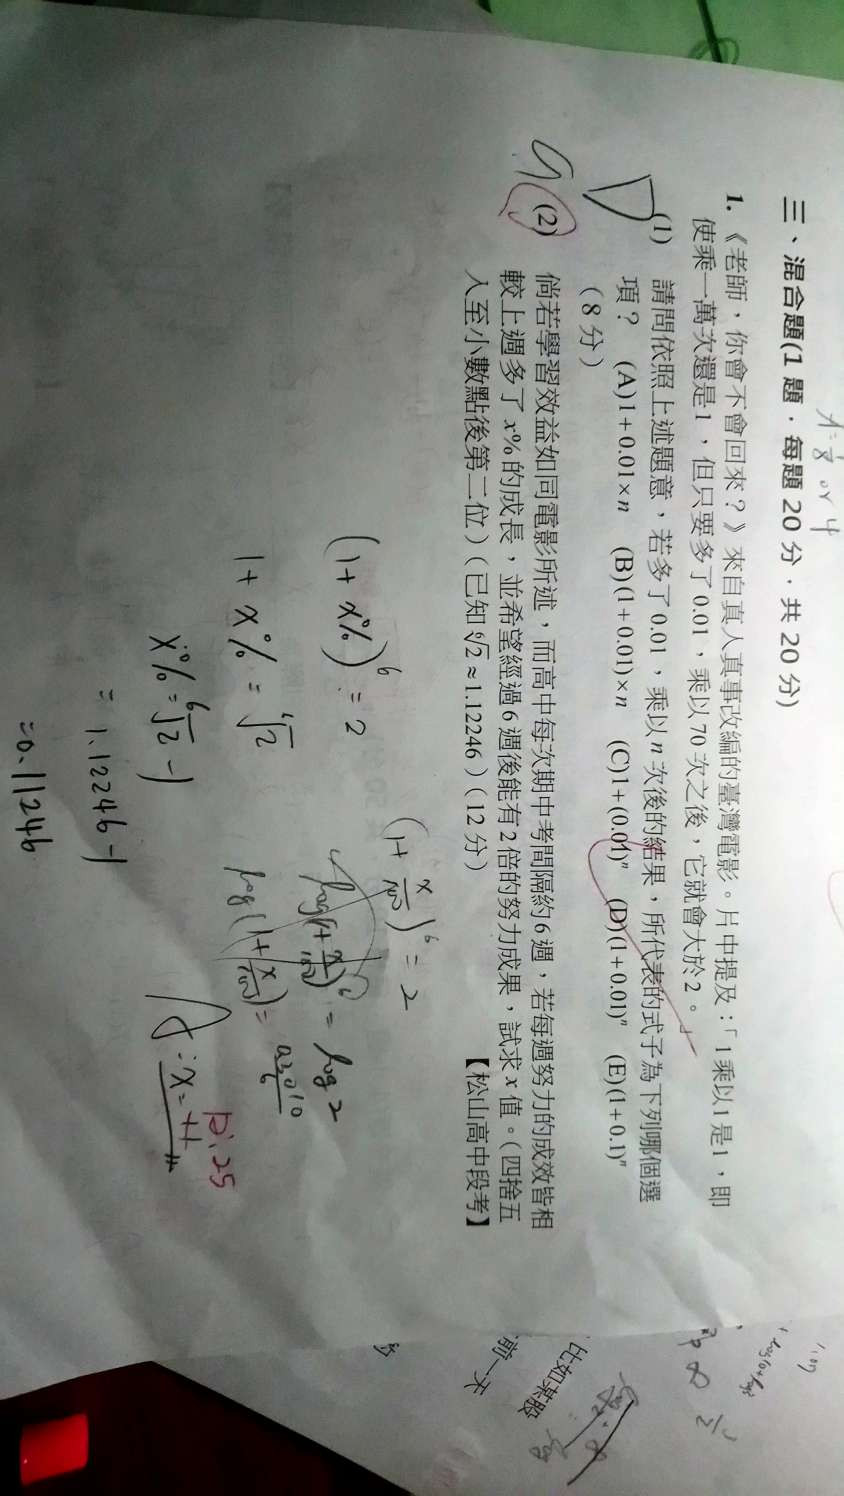 三、混合題(1 題．每題 20 分．共 20 分)
1. 《老師，你會不會回來？》來自真人真事改編的臺灣電影。片中提及：「1乘以1是1，即
使乘一萬次還是1，但只要多了0.01，乘以70次之後，它就會大於2。」
(1) 請問依照上述題意，若多了0.01，乘以n次後的結果，所代表的式子為下列哪個選
項？ (A)1+0.01×n (B)(1+0.01)×n (C)1+(0.01)ⁿ (D)(1+0.01)ⁿ (E)(1+0.1)ⁿ
（8分）
D
(2) 倘若學習效益如同電影所述，而高中每次期中考間隔約6週，若每週努力的成效皆相
較上週多了x%的成長，並希望經過6週後能有2倍的努力成果，試求x值。（四捨五
入至小數點後第二位）（已知⁶√2≈1.12246）（12分） 【松山高中段考】
(1+x%)⁶=2
1+x%=⁶√2
x%=⁶√2-1
=1.12246-1
=0.11246
(1+x/100)⁶=2
log(1+x/100)⁶=log2
log(1+x/100)=0.3010/6
A:x=11
p.25
or 4
比如某股
前一天